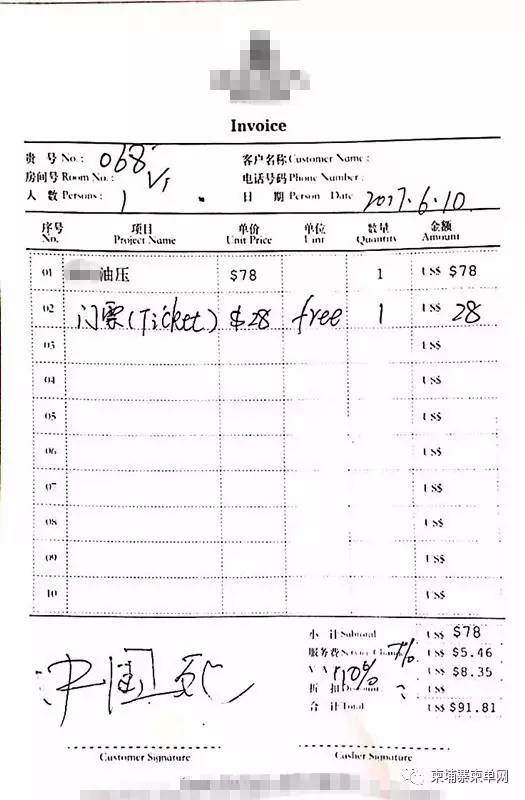 Invoice
贵 号 No.: 068
客户名称 Customer Name :
房间号 Room No.: V1
电话号码 Phone Number :
人 数 Persons: 1
日 期 Person Date 2017.6.10
序号 项目 单价 单位 数量 金额
No. Project Name Unit Price Unit Quantity Amount
01 油压 $78 1 US$ $78
02 门票(Ticket) $28 free 1 US$ 28
03 US$
04 US$
05 US$
06 US$
07 US$
08 US$
09 US$
10 US$
小 计 Subtotal US$ $78
服务费 Service Charge 7% US$ $5.46
VAT 10% US$ $8.35
折 扣 Discount US$
合 计 Total US$ $91.81
Customer Signature
Casher Signature
柬埔寨柬单网